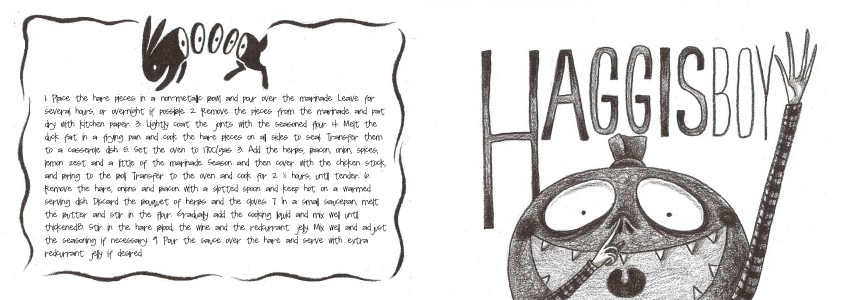 1. Place the hare pieces in a non-metallic bowl and pour over the marinade. Leave for
several hours, or overnight if possible. 2. Remove the pieces from the marinade and pat
dry with kitchen paper. 3. Lightly coat the joints with the seasoned flour. 4. Melt the
duck fat in a frying pan and cook the hare pieces on all sides to seal. Transfer them
to a casserole dish. 5. Set the oven to 170C/gas 3. Add the herbs, bacon, onion, spices,
lemon zest and a little of the marinade. Season and then cover with the chicken stock,
and bring to the boil. Transfer to the oven and cook for 2 ½ hours, until tender. 6.
Remove the hare, onions and bacon with a slotted spoon and keep hot on a warmed
serving dish. Discard the bouquet of herbs and the cloves. 7. In a small saucepan, melt
the butter and stir in the flour. Gradually add the cooking liquid and mix well until
thickened8. Stir in the hare blood, the wine and the redcurrant jelly. Mix well and adjust
the seasoning if necessary. 9. Pour the sauce over the hare and serve with extra
redcurrant jelly if desired.
HAGGISBOY